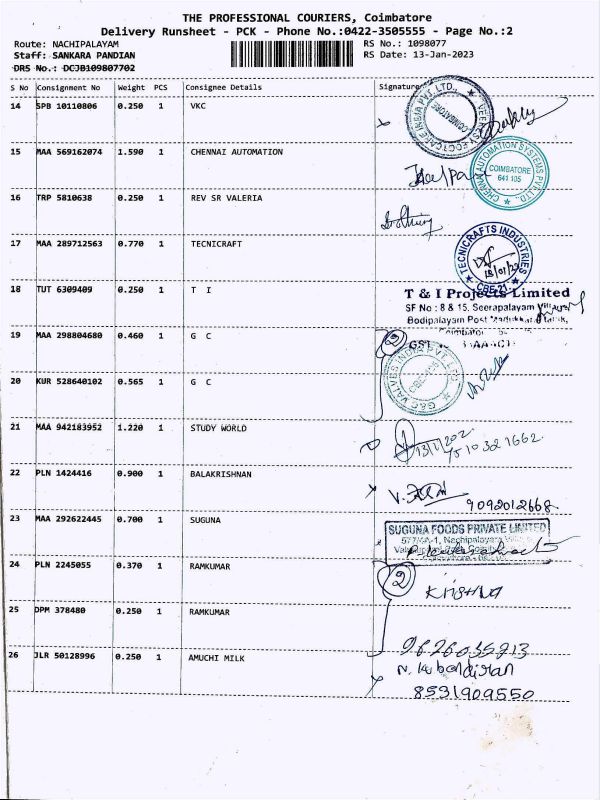 THE PROFESSIONAL COURIERS, Coimbatore
Delivery Runsheet - PCK - Phone No.:0422-3505555 - Page No.:2
Route: NACHIPALAYAM RS No.: 1098077
Staff: SANKARA PANDIAN RS Date: 13-Jan-2023
DRS No.: DCJ0109807702
S No Consignment No Weight PCS Consignee Details Signature
14 SPB 10110806 0.250 1 VKC
COIMBATORE
15 MAA 569162074 1.590 1 CHENNAI AUTOMATION
CHENNAI AUTOMATION SYSTEMS PVT LTD.,
COIMBATORE
641 105
16 TRP 5810638 0.250 1 REV SR VALERIA
17 MAA 289712563 0.770 1 TECNICRAFT
TECNICRAFTS INDUSTRIES
CBE-21
18 TUT 6309409 0.250 1 T I
T & I Projects Limited
SF No : 8 & 15, Seerapalayam Village
Bodipalayam Post
19 MAA 298804680 0.460 1 G C
2
G&C VALVES INDIA PVT LTD
20 KUR 528640102 0.565 1 G C
21 MAA 942183952 1.220 1 STUDY WORLD
7510321662
22 PLN 1424416 0.900 1 BALAKRISHNAN
9092012668
23 MAA 292622445 0.700 1 SUGUNA
SUGUNA FOODS PRIVATE LIMITED
24 PLN 2245055 0.370 1 RAMKUMAR
2
Krishna
25 DPM 378480 0.250 1 RAMKUMAR
9626035813
26 JLR 50128996 0.250 1 AMUCHI MILK
8531909550